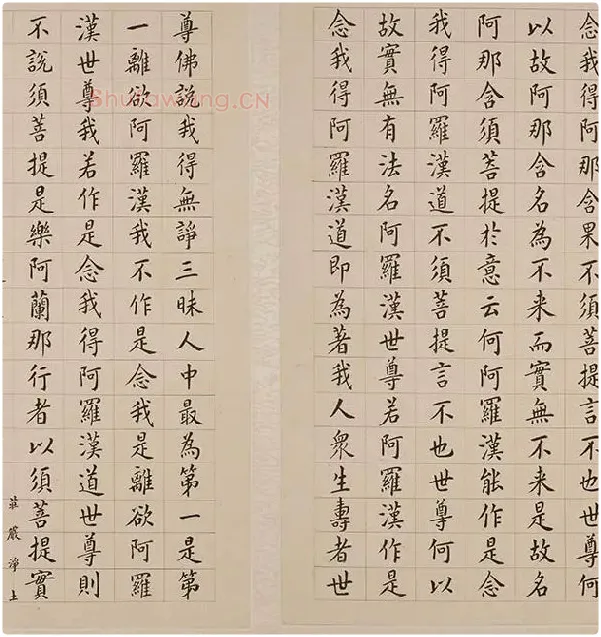 念我得阿那含果不須菩提言不也世尊何
以故阿那含名為不来而實無不来是故名
阿那含須菩提於意云何阿羅漢能作是念
我得阿羅漢道不須菩提言不也世尊何以
故實無有法名阿羅漢世尊若阿羅漢作是
念我得阿羅漢道即為著我人衆生壽者世
尊佛說我得無諍三昧人中最為第一是第
一離欲阿羅漢我不作是念我是離欲阿羅
漢世尊我若作是念我得阿羅漢道世尊則
不說須菩提是樂阿蘭那行者以須菩提實
莊嚴淨土
Shufawang.CN